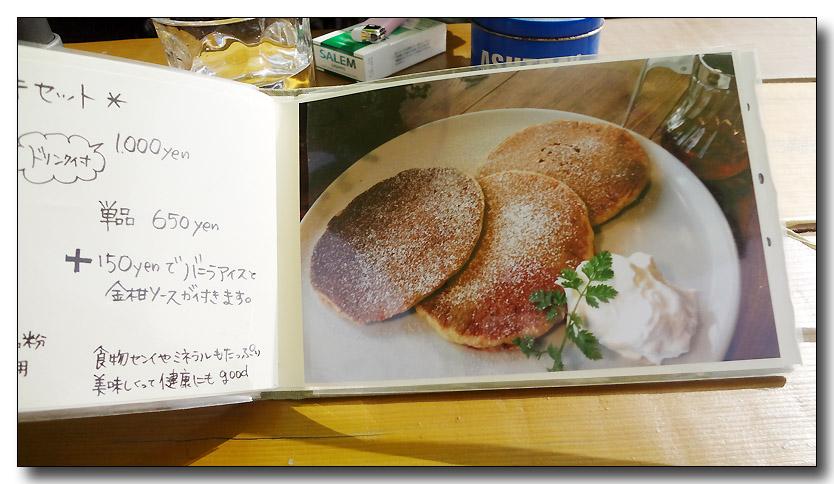 SALEM
セット *
ドリンク付
1.000 yen
単品 650 yen
+ 150yenでバニラアイスと
金柑ソースが付きます。
粉
用
食物センイやミネラルもたっぷり
美味しくって健康にも good